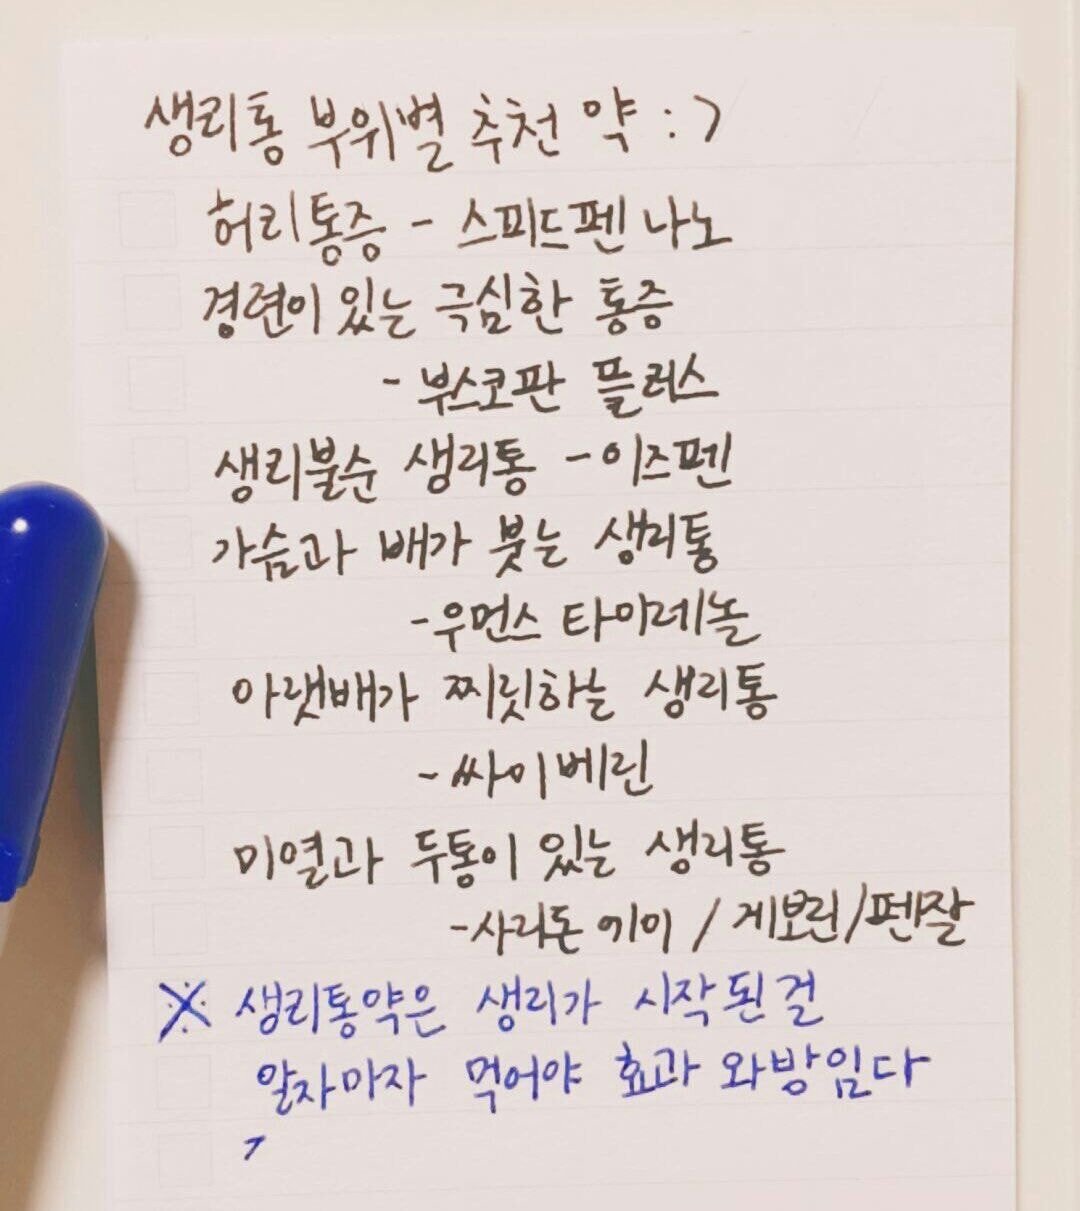 생리통 부위별 추천 약 :>
허리통증 - 스피드펜 나노
경련이 있는 극심한 통증
- 부스코판 플러스
생리불순 생리통 - 이즈펜
가슴과 배가 붓는 생리통
- 우먼스 타이레놀
아랫배가 찌릿하는 생리통
- 싸이베린
미열과 두통이 있는 생리통
- 사리돈 에이 / 게보린 / 펜잘
※ 생리통약은 생리가 시작된걸
알자마자 먹어야 효과 와방임다